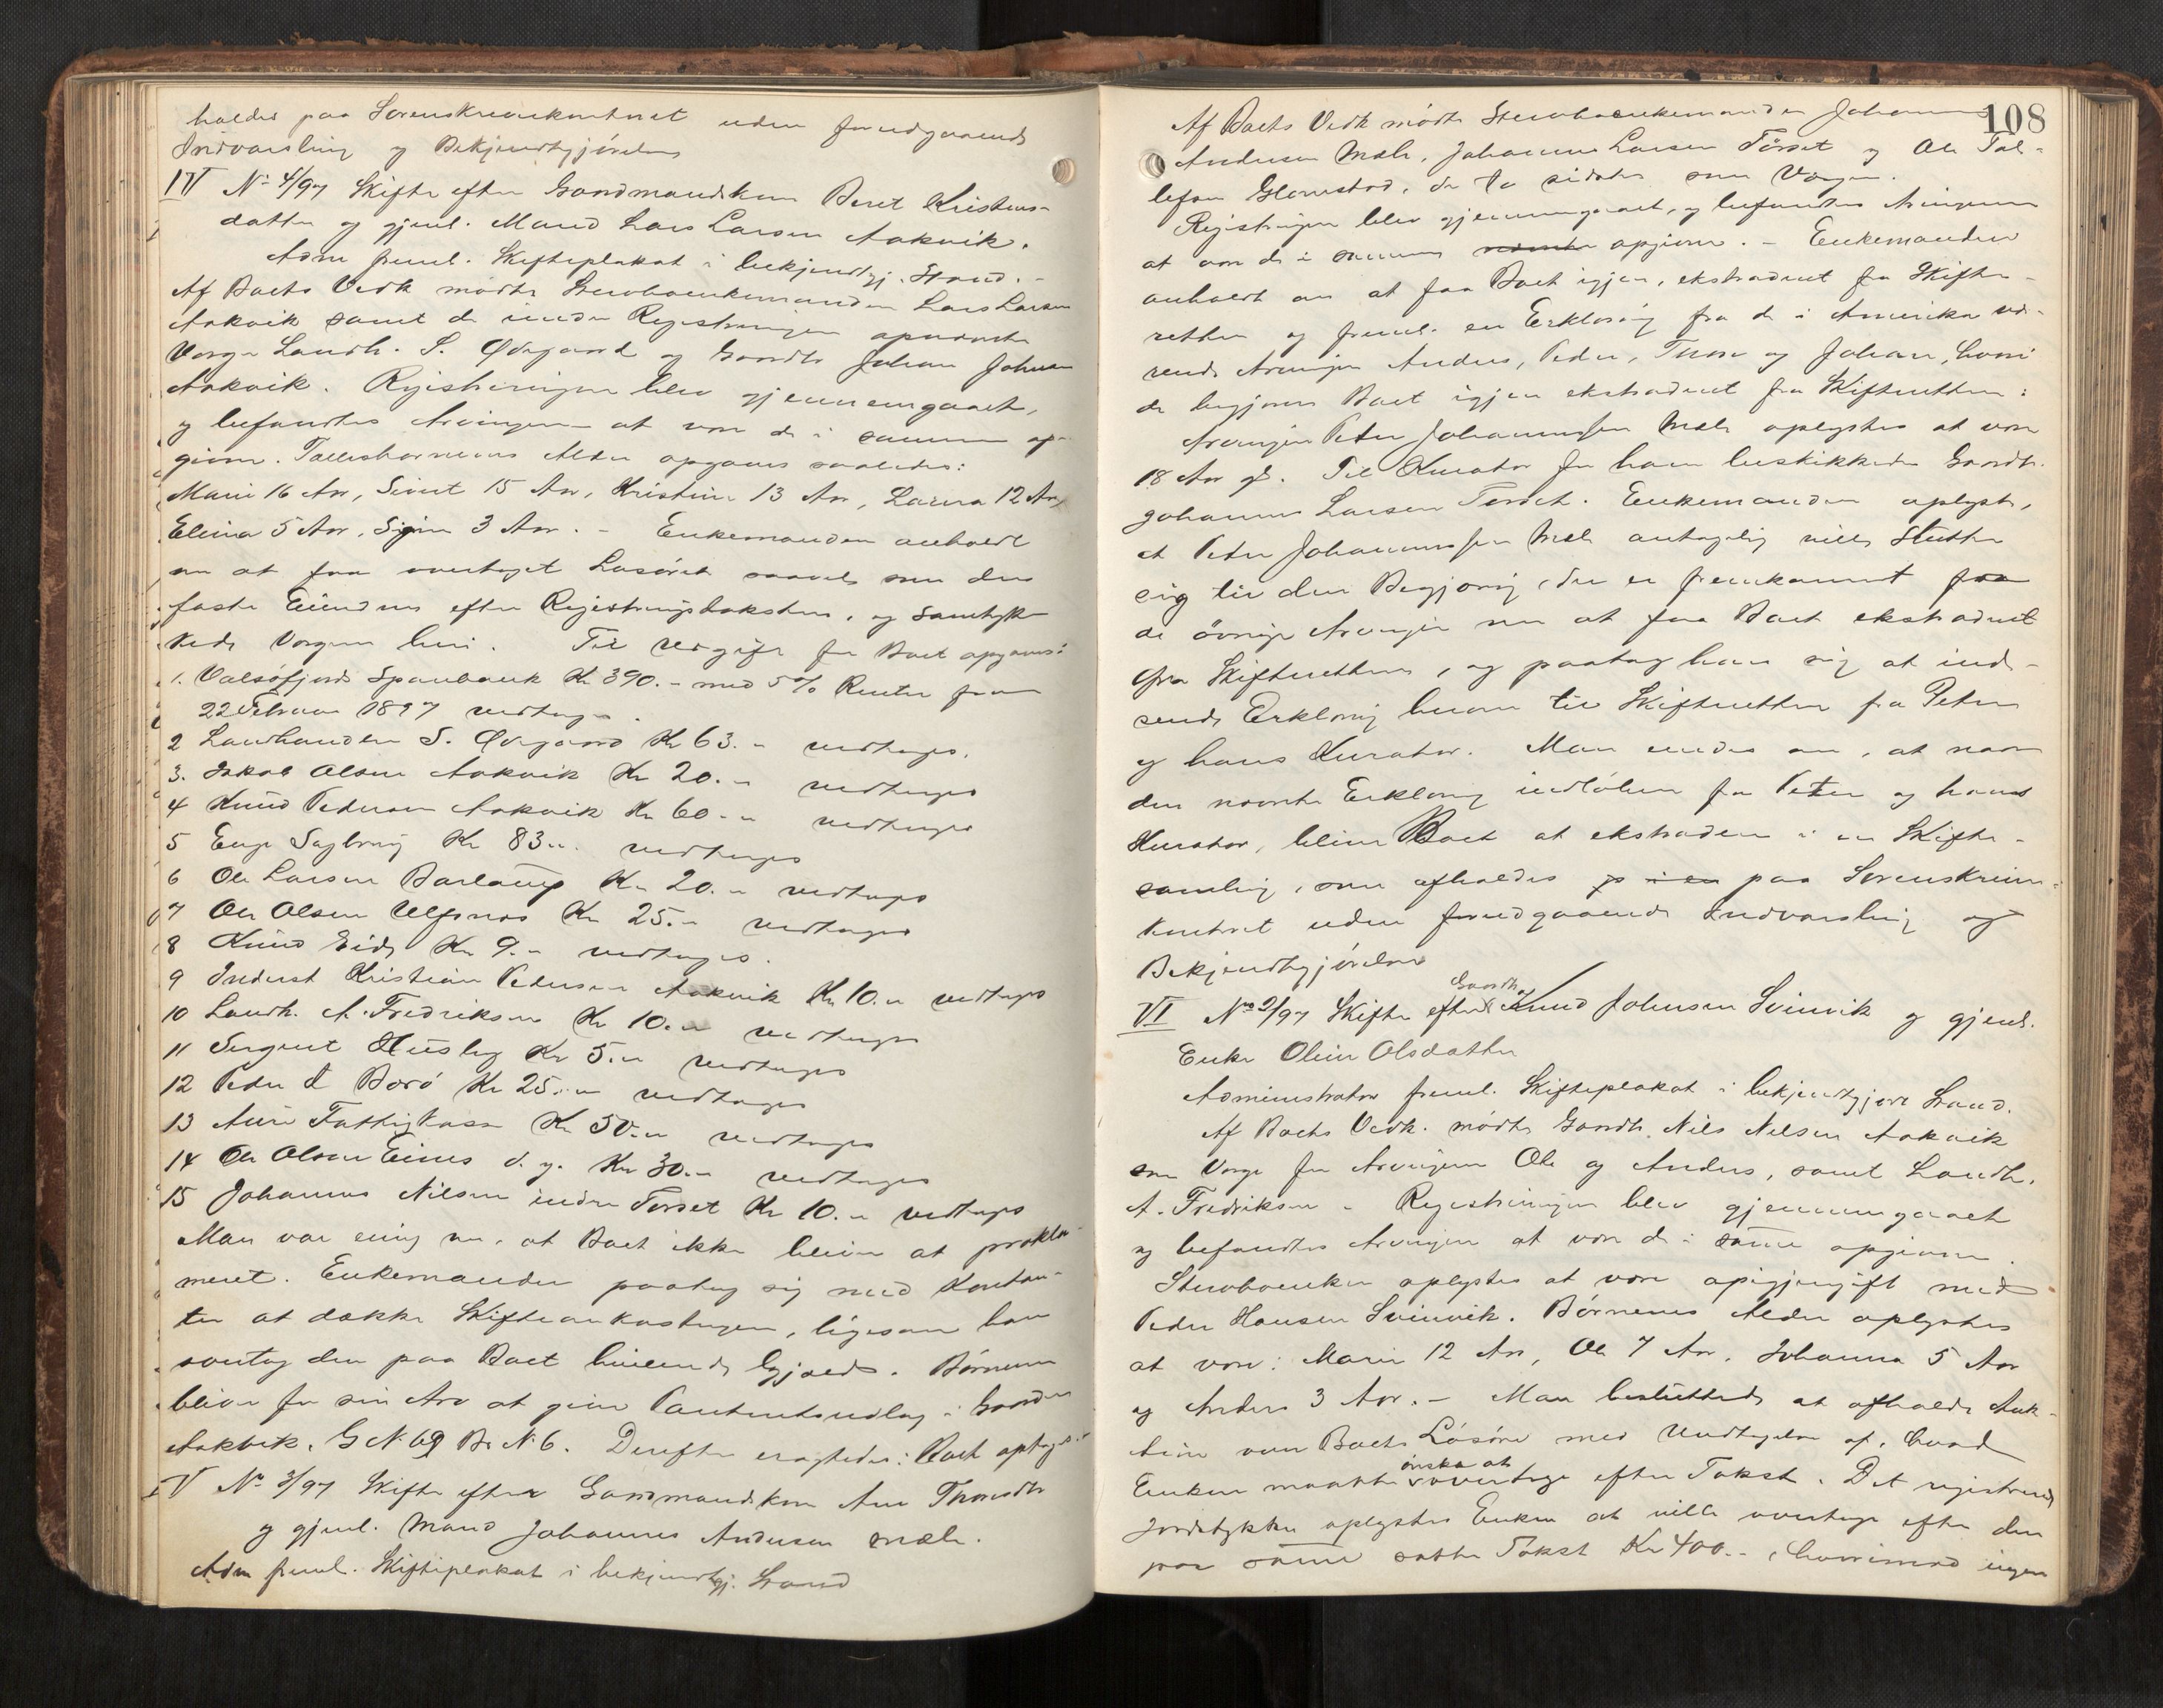 holdes paa Sorenskriverkontoret uden forudgaaende
Indvarsling og Bekjendtgjørelse
IV No 4/97 Skifte efter Gaardmandskone Beret Kristens-
datter og gjenl. Mand Lars Larsen Aakvik.
Adm freml. Skifteplakat i bekjendtgj. Stand. -
Af Boets Vedk mødte Stervboenkemanden Lars Larsen
Aakvik samt de under Registreringen opnævnte
Værger Landh. S. Ødegaard og Gaardbr Johan Johnsen
Aakvik. Registreringen blev gjennemgaaet,
og befandtes Arvingerne at være de i samme op-
givne. Fællesbørnenes Alder opgaves saaledes:
Marie 16 Aar, Sivert 15 Aar, Kristine 13 Aar, Larna 12 Aar,
Elina 5 Aar, Signe 3 Aar. - Enkemanden anholdt
om at faa overtaget Løsøret saavel som den
faste Eiendom efter Registreringstaksten, og samtyk-
kede Værgerne heri. Til Udgift for Boet opgaves:
1. Valsøfjords Sparebank Kr 390.- med 5% Renter fra
22 Februar 1897 vedtages.
2 Landhandler S. Ødegaard Kr 63.- vedtages.
3. Jakob Olsen Aakvik Kr 20.- vedtages
4 Knud Pedersen Aakvik Kr 60.- vedtages
5 Enge Sagbrug Kr 83.-. vedtages
6 Ole Larsen Kr 20.- vedtages
7 Ole Olsen Ulfsnes Kr 25.- vedtages
8 Knud Eide Kr 9.- vedtages.
9 Inderst Kristian Pedersen Aakvik Kr 10.- vedtages
10 Landh. A. Fredriksen Kr 10.- vedtages
11 Sergent Husby Kr 5.- vedtages
12 Peder Borø Kr 25.- vedtages
13 Aure Fattigkasse Kr 50.- vedtages
14 Ole Olsen Eines d. y. Kr 30.- vedtages
15 Johannes Nilsen indre Torset Kr 10.- vedtages
Man var enig om, at Boet ikke bliver at prokla-
meret. Enkemanden paatog sig med Kontan-
ter at dække Skifteomkostningerne, ligesom han
overtog den paa Boet hvilende Gjæld. Børnene
bliver for sin Arv at give Panteretsudlæg i Gaarden
Aakvik, G N. 69 Br N. 6. Derefter eragtedes: Boet optages
V No 3/97 Skifte efter Gaardmandskone Ane Thoresdtr
og gjenl. Mand Johannes Andersen Mæle.
Adm freml. Skifteplakat i bekjendtgj. Stand
108
Af Boets Vedk mødte Stervboenkemanden Johannes
Andersen Mæle, Johannes Larsen Torset og Ole Tol-
lefsen Glærestad, de to sidste som Værger.
Registreringen blev gjennemgaaet, og befandtes Arvingerne
at være de i samme nævnte opgivne. - Enkemanden
anholdt om at faa Boet igjen, ekstraderet fra Skifte-
retten og freml. en Erklæring fra de i Amerika væ-
rende Arvinger Anders, Peder, Tore og Johan, hvori
de begjærer Boet igjen ekstraderet fra Skifteretten:
Arvingen Peter Johannessen Mæle oplystes at være
18 Aar gl. Til Kurator for ham beskikkedes Gaardbr.
Johannes Larsen Torset. Enkemanden oplyste,
at Peter Johannessen Mæle antagelig ville slutte
sig til den Begjæring, der er fremkommet fra
de øvrige Arvinger om at faa Boet ekstraderet
fra Skifteretten, og paatog han sig at ind-
sende Erklæring herom til Skifteretten fra Peter
og hans Kurator. Man enedes om, at naar
den nævnte Erklæring indløber fra Peter og hans
Kurator, bliver Boet at ekstradere i en Skifte-
samling, som afholdes paa Sorenskriver-
kontoret uden forudgaaende Indvarsling og
Bekjendtgjørelse
VI No 2/97 Skifte efter Gaardbr Knud Johnsen Svinvik og gjenl.
Enke Oline Olsdatter
Administrator freml. Skifteplakat i bekjendtgjort Stand.
Af Boets Vedk. mødte Gaardbr. Nils Nilsen Aakvik
som Værge for Arvingerne Ole og Anders, samt Landh.
A. Fredriksen. Registreringen blev gjennemgaaet
og befandtes Arvingerne at være de i samme opgivne.
Stervboenken oplystes at være opigjengift med
Peder Hansen Svinvik. Børnenes Alder oplystes
at være: Marie 12 Aar, Ole 7 Aar, Johanna 5 Aar
og Anders 3 Aar. - Man besluttede at afholde Auk-
tion over Boets Løsøre med Undtagelse af, hvad
Enken maatte ønske at overtage efter Takst. Det registrerede
Jordstykke oplystes Enken at ville overtage efter den
paa samme satte Takst Kr 400.-, hvorimod ingen